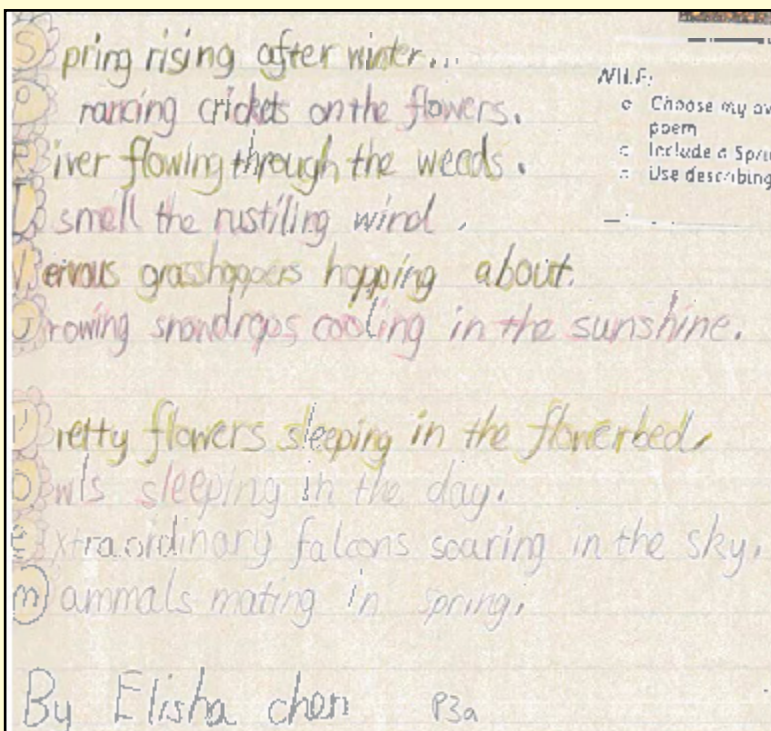 Spring rising after winter...
Prancing crickets on the flowers.
River flowing through the weeds.
I smell the rustiling wind.
Nervous grasshoppers hopping about.
Growing snowdrops cooling in the sunshine.
Pretty flowers sleeping in the flowerbed.
Owls sleeping in the day.
Extraordinary falcons soaring in the sky.
Mammals mating in spring.
By Elisha chen P3a
WILF:
Choose my
poem
Include a
Use describing